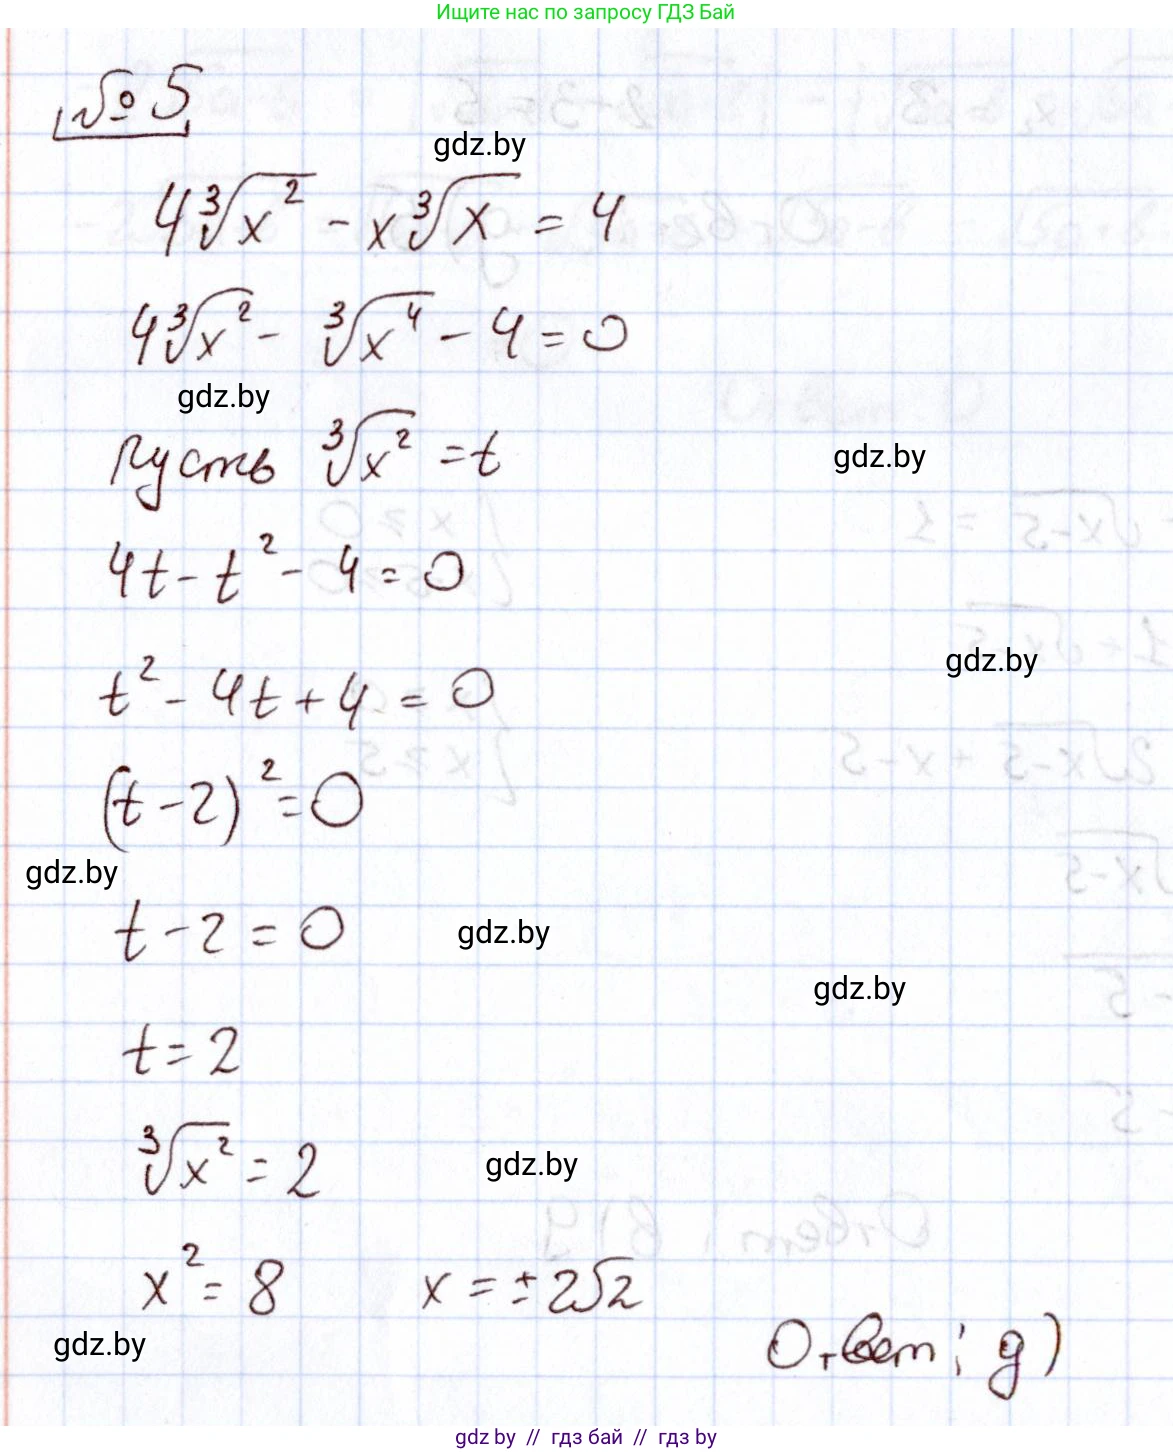 Ищите нас по запросу ГДЗ Бай
№ 5
gdz.by
4∛x² - x∛x = 4
4∛x² - ∛x⁴ - 4 = 0
gdz.by
Пусть ∛x² = t
gdz.by
4t - t² - 4 = 0
gdz.by
t² - 4t + 4 = 0
(t - 2)² = 0
gdz.by
t - 2 = 0
gdz.by
gdz.by
t = 2
∛x² = 2
gdz.by
x² = 8 x = ± 2√2
gdz.by
Ответ: д)
gdz by // гдз бай // гдз by